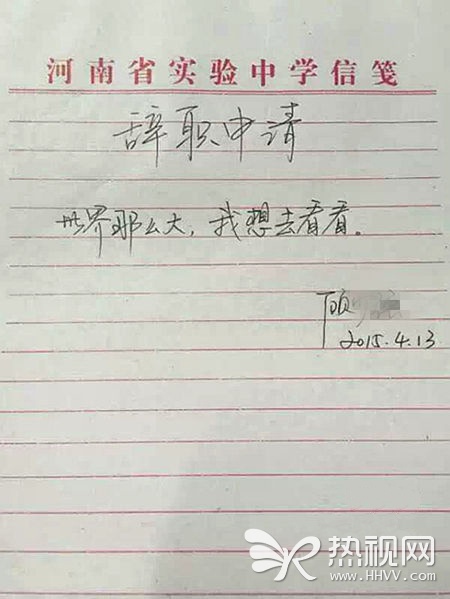 河南省实验中学信笺
辞职申请
世界那么大，我想去看看。
顾
2015.4.13
热视网
www.HHVV.com